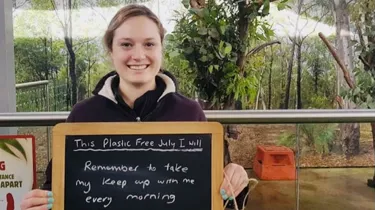 This Plastic Free July I will
Remember to take
my keep cup with me
every morning
G
ANCE
APART